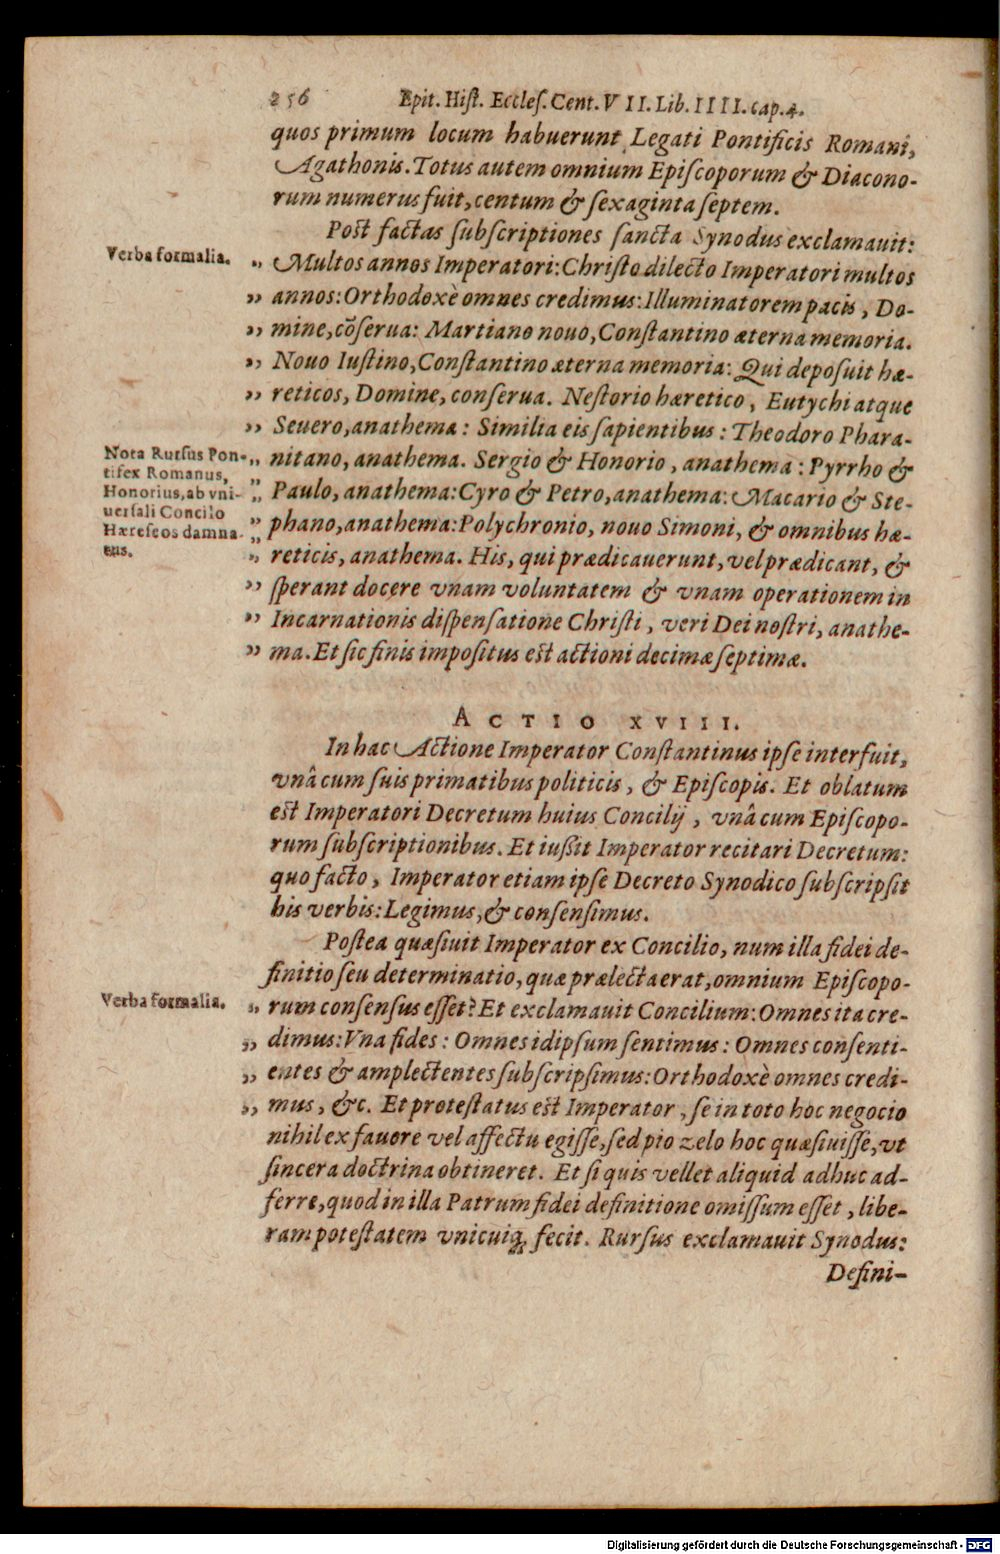 256 Epit. Hiſt. Eccleſ. Cent. VII. Lib. IIII. cap. 4.
quos primum locum habuerunt Legati Pontificis Romani,
Agathonis. Totus autem omnium Epiſcoporum & Diacono-
rum numerus fuit, centum & ſexaginta ſeptem.
Poſt factas ſubſcriptiones ſancta Synodus exclamauit:
Verba formalia.
„ Multos annos Imperatori: Chriſto dilecto Imperatori multos
„ annos: Orthodoxè omnes credimus: Illuminatorem pacis, Do-
„ mine, cõſerua: Martiano nouo, Conſtantino æterna memoria.
„ Nouo Iuſtino, Conſtantino æterna memoria: Qui depoſuit hæ-
„ reticos, Domine, conſerua. Neſtorio hæretico, Eutychi atque
„ Seuero, anathema: Similia eis ſapientibus: Theodoro Phara-
Nota Rurſus Pon-
tifex Romanus,
Honorius, ab vni-
uerſali Concilo
Hæreſeos damna-
tus.
„ nitano, anathema. Sergio & Honorio, anathema: Pyrrho &
„ Paulo, anathema: Cyro & Petro, anathema: Macario & Ste-
„ phano, anathema: Polychronio, nouo Simoni, & omnibus hæ-
„ reticis, anathema. His, qui prædicauerunt, vel prædicant, &
„ ſperant docere vnam voluntatem & vnam operationem in
„ Incarnationis diſpenſatione Chriſti, veri Dei noſtri, anathe-
„ ma. Et ſic finis impoſitus eſt actioni decimæ ſeptimæ.
ACTIO XVIII.
In hac Actione Imperator Conſtantinus ipſe interfuit,
vnâ cum ſuis primatibus politicis, & Epiſcopis. Et oblatum
eſt Imperatori Decretum huius Concilij, vnâ cum Epiſcopo-
rum ſubſcriptionibus. Et iuſſit Imperator recitari Decretum:
quo facto, Imperator etiam ipſe Decreto Synodico ſubſcripſit
his verbis: Legimus, & conſenſimus.
Poſtea quæſiuit Imperator ex Concilio, num illa fidei de-
finitio ſeu determinatio, quæ prælecta erat, omnium Epiſcopo-
Verba formalia.
„ rum conſenſus eſſet? Et exclamauit Concilium: Omnes ita cre-
„ dimus: Vna fides: Omnes idipſum ſentimus: Omnes conſenti-
„ entes & amplectentes ſubſcripſimus: Orthodoxè omnes credi-
„ mus, &c. Et proteſtatus eſt Imperator, ſe in toto hoc negocio
nihil ex fauore vel affectu egiſſe, ſed pio zelo hoc quæſiuiſſe, vt
ſincera doctrina obtineret. Et ſi quis vellet aliquid adhuc ad-
ferre, quod in illa Patrum fidei definitione omiſſum eſſet, libe-
ram poteſtatem vnicuiq; fecit. Rurſus exclamauit Synodus:
Defini-
Digitalisierung gefördert durch die Deutsche Forschungsgemeinschaft - DFG